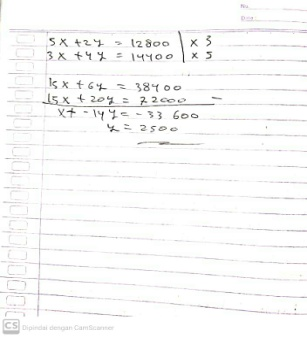 No.
Date
5x + 2y = 12800 | x 3
3x + 4y = 14400 | x 5
15x + 6y = 38400
15x + 20y = 72000 -
x + -14y = -33 600
y = 2500
CS Dipindai dengan CamScanner